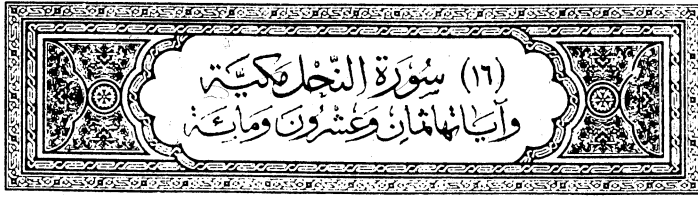 (١٦) سُورَة النَّحْل مَكيَّة
وَآيَاتها ثمَان وَعشْرُونَ وَمَائة